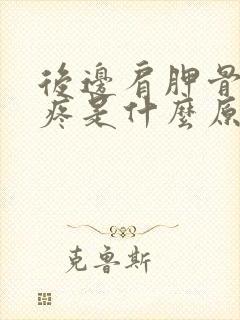 後邊肩胛骨
疼是什麼原
克鲁斯